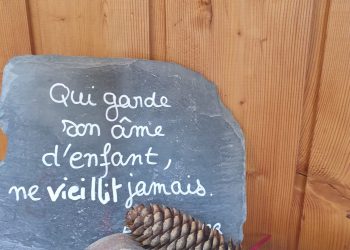 Qui garde
son âme
d'enfant,
ne vieillit jamais.